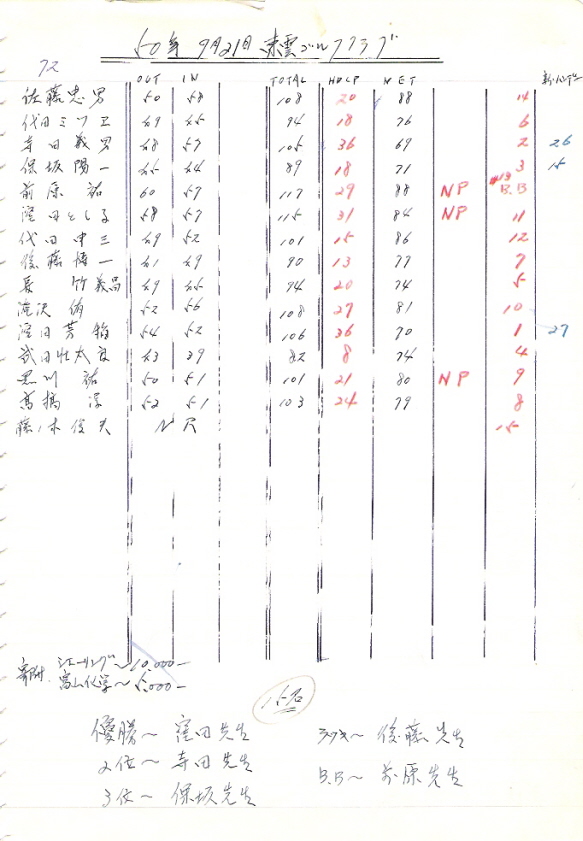 50年 9月21日 東雲ゴルフクラブ
72
OUT IN TOTAL HDCP NET 新ハンデ
佐藤忠男 50 58 108 20 88 14
代田ミツヱ 49 45 94 18 76 6
寺田義男 48 57 105 36 69 2 26
保坂陽一 45 44 89 18 71 3 15
前原 祐 60 57 117 29 88 NP #13 B.B
窪田としる 58 57 115 31 84 NP 11
代田申三 49 52 101 15 86 12
後藤博一 41 49 90 13 77 7
長 竹義昌 49 45 94 20 74 5
滝沢 侑 52 56 108 27 81 10
窪田芳 54 52 106 36 70 1 27
武田壮太良 43 39 82 8 74 4
黒川 祐 50 51 101 21 80 NP 9
高橋 淳 52 51 103 24 79 8
藤ノ木俊夫 N R 15
寄附 シエーリング〜10,000−
富山化学〜5,000−
15名
優勝〜 窪田先生
2位〜 寺田先生
3位〜 保坂先生
ラッキ〜 後藤先生
B.B〜 前原先生